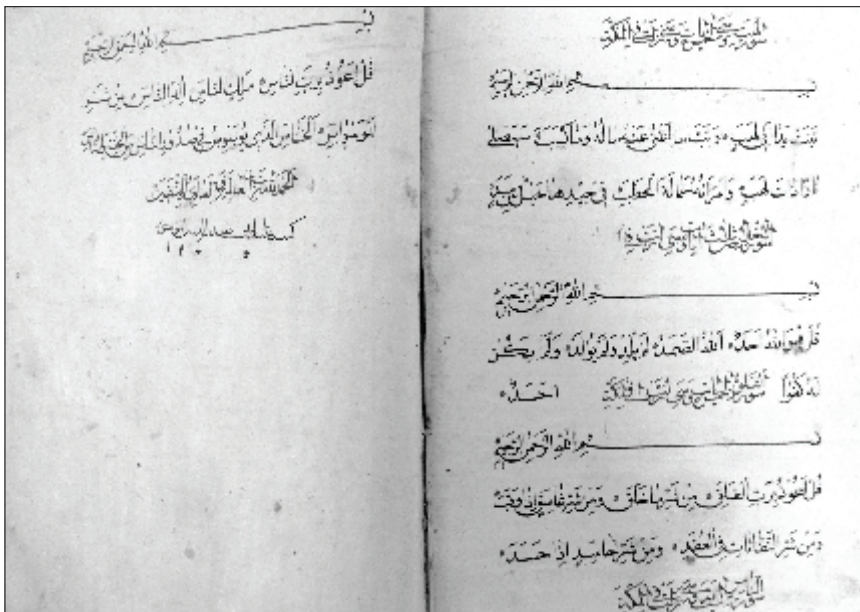 سورة في المكة
بسم الله الرحمن الرحيم
تبت يدا ابي لهب وتب ما اغنى عنه ماله وما كسب سيصلى
نارا ذات لهب وامراته حمالة الحطب في جيدها حبل من مسد
سورة
بسم الله الرحمن الرحيم
قل هو الله احد الله الصمد لم يلد ولم يولد ولم يكن
له كفوا سورة في المكة احد
بسم الله الرحمن الرحيم
قل اعوذ برب الفلق من شر ما خلق ومن شر غاسق اذا وقب
ومن شر النفاثات في العقد ومن شر حاسد اذا حسد
سورة الناس في المكة
بسم الله الرحمن الرحيم
قل اعوذ برب الناس ملك الناس اله الناس من شر
الوسواس الخناس الذي يوسوس في صدور الناس من الجنة
الحمد لله رب العالمين